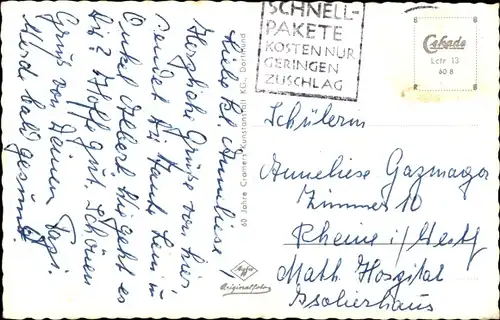 Liebe kl. Annliese!
Herzliche Grüße von hier
sendet Dir Tante Leni u
Onkel Albert. Wie geht es
Dir? Hoffe gut. Schönen
Gruß von Deinem
Werd bald gesund.
60 Jahre Cramers Kunstanstalt KG., Dortmund
Agfa
Originalfoto
SCHNELL-
PAKETE
KOSTEN NUR
GERINGEN
ZUSCHLAG
Cekade
Lctr 13
60 8
Schülerin
Anneliese Gazmaga
Zimmer 10
Rheine i/Westf
Math. Hospital
Isolierhaus